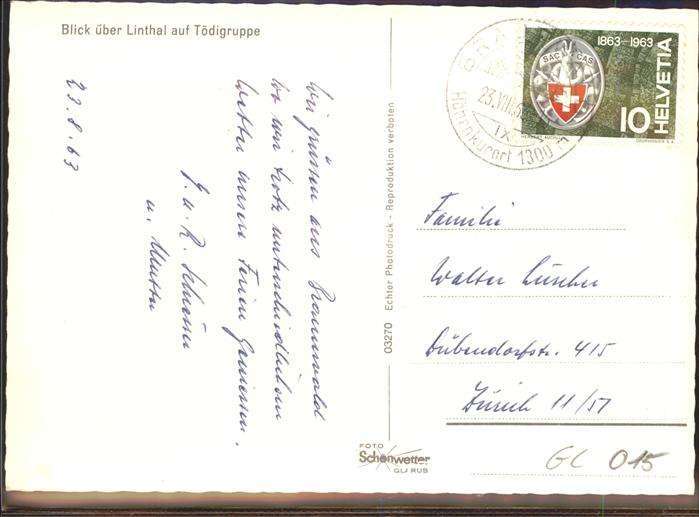 Blick über Linthal auf Tödigruppe
23.8.63
Wir grüssen aus Braunwald
wo wir trotz unterschiedlichem
Wetter unsere Ferien geniessen.
u. Mutter
03270 Echter Photodruck - Reproduktion verboten
FOTO
Schönwetter
GLARUS
1863-1963
SAC CAS
HELVETIA
10
23.VIII.
Höhenkurort 1300 m
Familie
Walter Lüscher
Dübendorfstr. 415
Zürich 11/51
GL 015